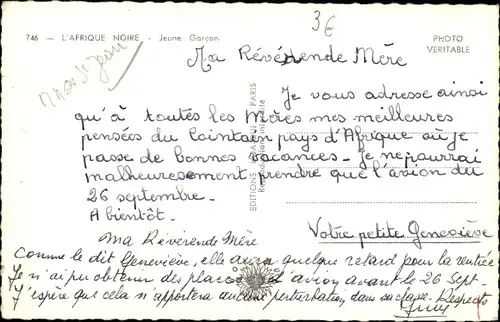 746 — L'AFRIQUE NOIRE - Jeune Garçon.
3€
PHOTO
VERITABLE
Ma Révérende Mère
Je vous adresse ainsi
qu'à toutes les Mères mes meilleures
pensées du lointain pays d'Afrique où je
passe de bonnes vacances - je ne pourrai
malheureusement prendre que l'avion du
26 septembre -
A bientôt -
Votre petite Geneviève
EDITIONS PARIS
Ma Révérende Mère
Comme le dit Geneviève, elle aura quelque retard pour la rentrée
Je n'ai pu obtenir des places d'avion avant le 26 Sept
J'espère que cela n'apportera aucune perturbation dans sa classe. Respects